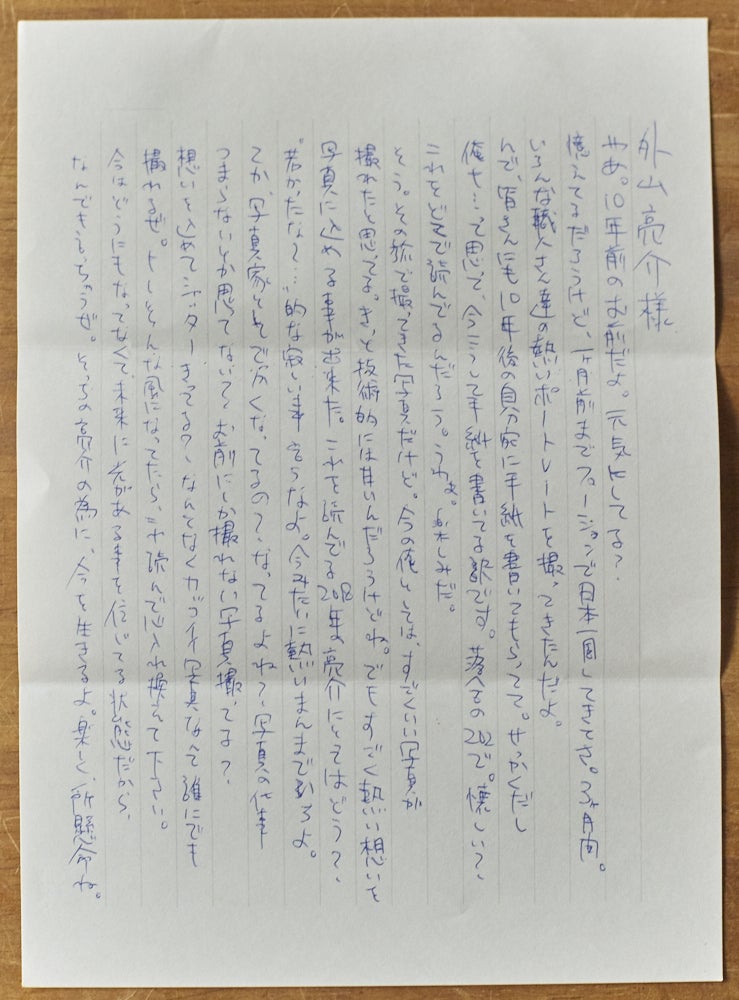 外山亮介様
やあ。10年前のお前だよ。元気にしてる?
憶えてるだろうけど、一ヶ月前までフュージョンで日本一周してきてさ。3ヶ月間。
いろんな職人さん達の熱いポートレートを撮ってきたんだよ。
んで、皆さんにも10年後の自分宛に手紙を書いてもらってて。せっかくだし
俺も…って思って、今こうして手紙を書いてる訳です。落合の202で。懐しい?、
これをどこで読んでるんだろう。うわぁ。楽しみだ。
そう。その旅で撮ってきた写真だけど。今の俺としては、すごくいい写真が
撮れたと思ってる。きっと技術的には甘いんだろうけどね。でもすごく熱い想いを
写真に込める事が出来た。これを読んでる2018年の亮介にとってはどう?、
"若かったな〜…"的な寂しい事言うなよ。今みたいに熱いまんまで居ろよ。
てか、写真家として食えてるの?、なってるよね?、写真の仕事
つまらないとか思ってない?、お前にしか撮れない写真撮ってる?、
想いを込めてシャッターきってる?、なんとなくカッコイイ写真なんて誰にでも
撮れるぜ。もしそんな風になってたら、これ読んで心入れ換えて下さい。
今はどうにもなってなくて、未来に光がある事を信じてる状態だから、
なんでも言っちゃうぜ。そっちの亮介の為に、今を生きるよ。楽しく、一所懸命ね。